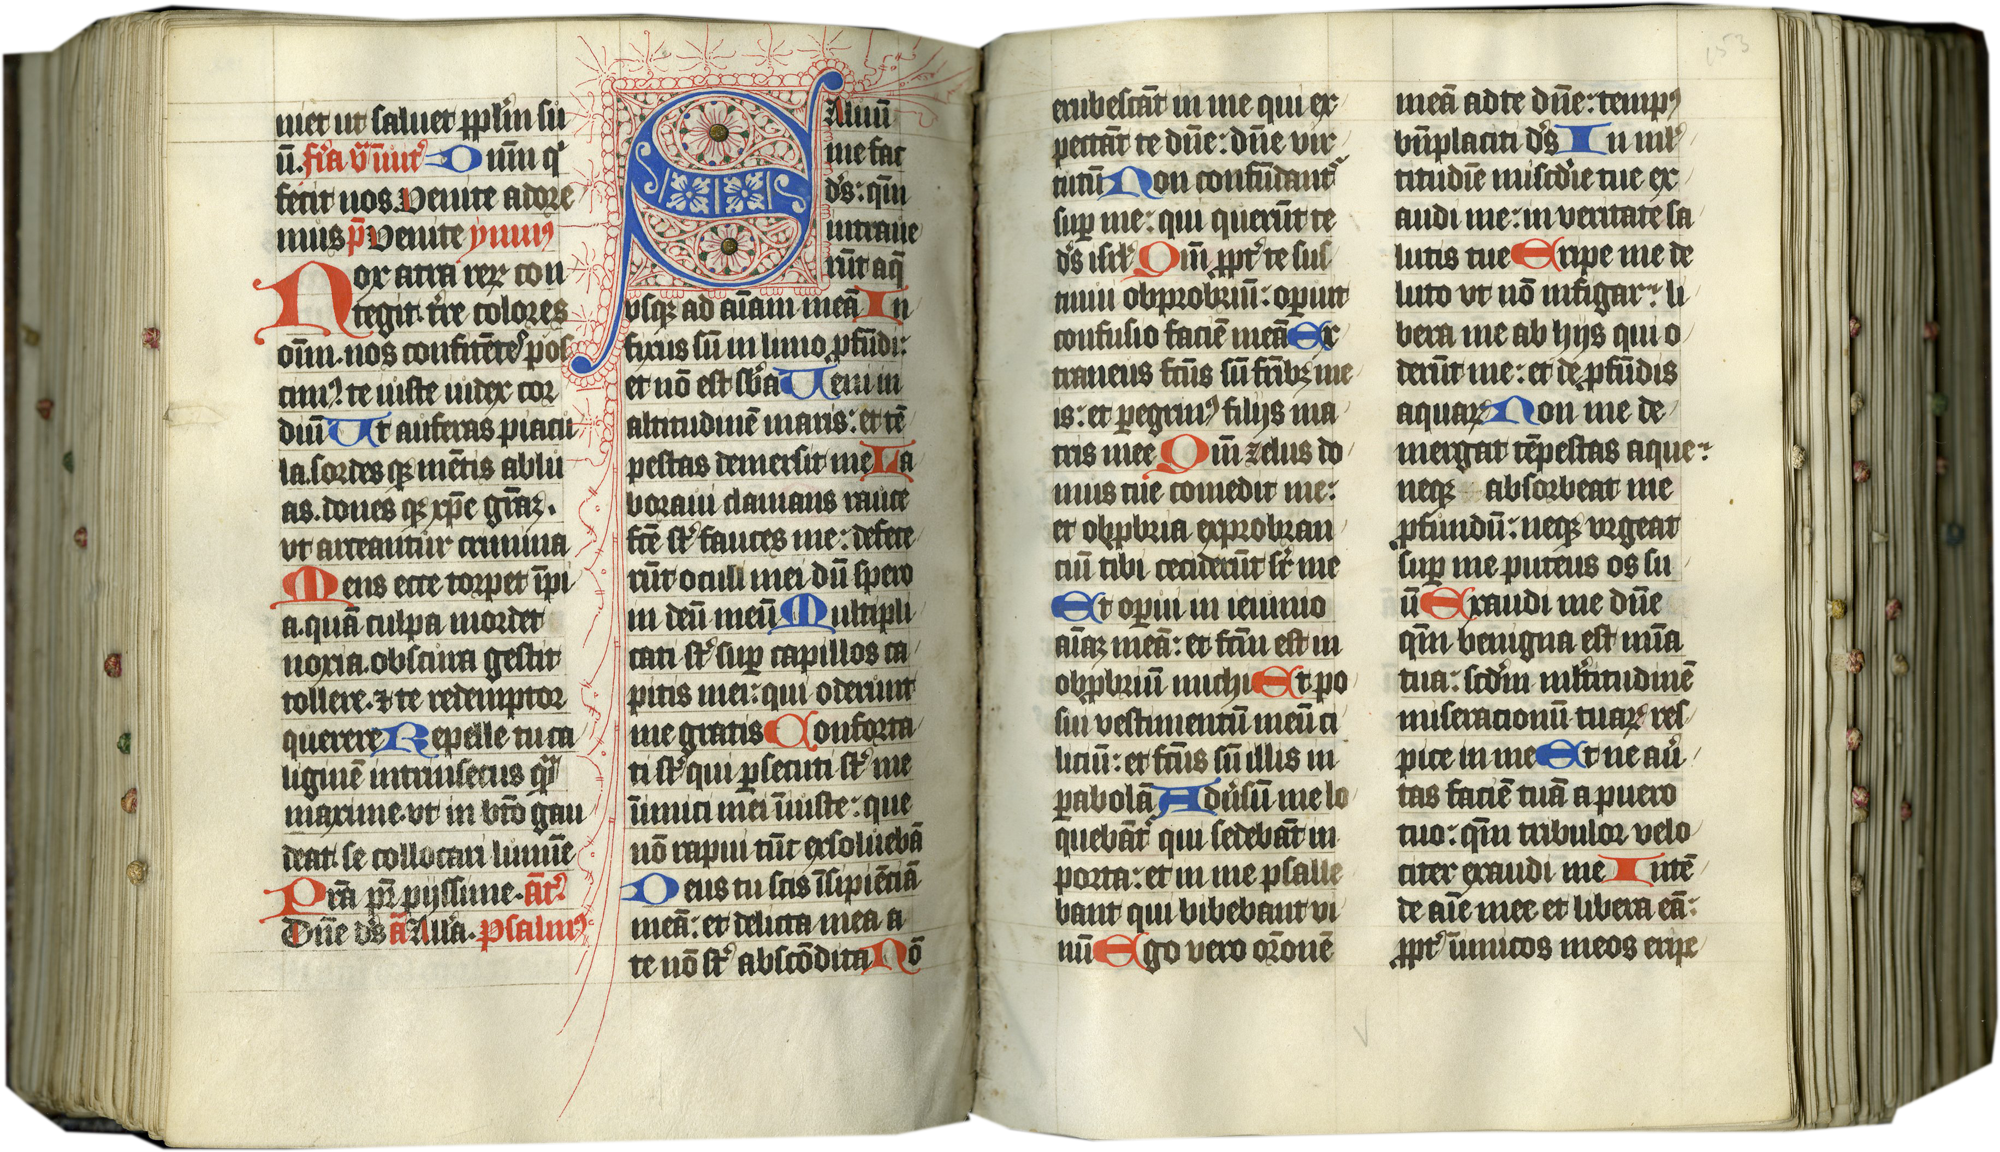 met ut saluet pplm̄ su
ū. fr̄ia v̄ inuit' Dn̄um q'
fecit nos. Venite adore
mus p̄ Venite ymnꝰ
Nox atra reꝝ con
tegit. tr̄re colores
om̄. nos confitēteˢ pos
cimꝰ. te iuste iudex cor
diū Ut auferas piacu
la. sordes qꝫ mētis ablu
as. dones qꝫ xp̄e gr̄aꝝ.
vt arceantur crimina
Mens ecce torpet īpi
a. quā culpa mordet
noxia. obscura gestit
tollere. ⁊ te redemptor
querere Repelle tu ca
liginē intrinsecus qͣ
maxime. vt in bt̄o gau
deat. se collocari lumīe
Pr̄a pr̄ pijssime. an̄t'
Dn̄e ds̄ a̅ All'a. psalmꝰ
Aluū
me fac
ds̄: qm̄
intraue
rūt aq̄
vsqꝫ ad aīam meā In
fixus sū in limo ꝓfūdi:
et nō est sb'a Ueni in
altitudinē maris: et tē
pestas demersit me La
boraui clamans rauce
fcē st' fauces me: defece
rūt oculi mei dū spero
in deū meū Multipli
cati st' suꝑ capillos ca
pitis mei: qui oderunt
me gratis Conforta
ti st' qui ꝑsecuti st' me
īimici mei īiuste: que
nō rapui tūc exsoluebā
Deus tu scis īsipiētiā
meā: et delicta mea a
te nō st' abscōdita Nō
erubescāt in me qui ex
pectāt te dn̄e: dn̄e vir
tutū Non confūdant'
suꝑ me: qui querūt te
ds̄ isrl' Qm̄ ꝓpt' te sus
tinui obprobriū: oꝑuit
confusio faciē meā Ex
traneus fc̄us sū fr̄ibꝫ me
is: et ꝑegrinꝰ filijs ma
tris mee Qm̄ zelus do
mus tue comedit me:
et obꝓbria exprobran
ciū tibi ceciderūt sr̄ me
Et oꝑui in ieiunio
aīaꝫ meā: et fc̄m est in
obꝓbriū michi Et po
sui vestimentū meū ci
liciū: et fc̄us sū illis in
ꝑabolā Adūsū me lo
quebāt' qui sedebāt in
porta: et in me psalle
bant qui bibebant vi
nū Ego vero or̄onē
153
meā ad te dn̄e: tempꝰ
bn̄placiti ds̄ In ml'
titudīe mis̄cd'ie tue ex
audi me: in veritate sa
lutis tue Eripe me de
luto vt nō infigar: li
bera me ab hijs qui o
derūt me: et de ꝓfūdis
aquaꝝ Non me de
mergat tēpestas aque:
neqꝫ absorbeat me
ꝓfundū: neqꝫ vrgeat
suꝑ me puteus os su
ū Exaudi me dn̄e
qm̄ benigna est mīa
tua: scd'm ml'titudinē
miserationū tuaꝝ res
pice in me Et ne au'
tas faciē tuā a puero
tuo: qm̄ tribulor velo
citer exaudi me Intē
de aīe mee et libera eā:
ꝓpt' īimicos meos eripe